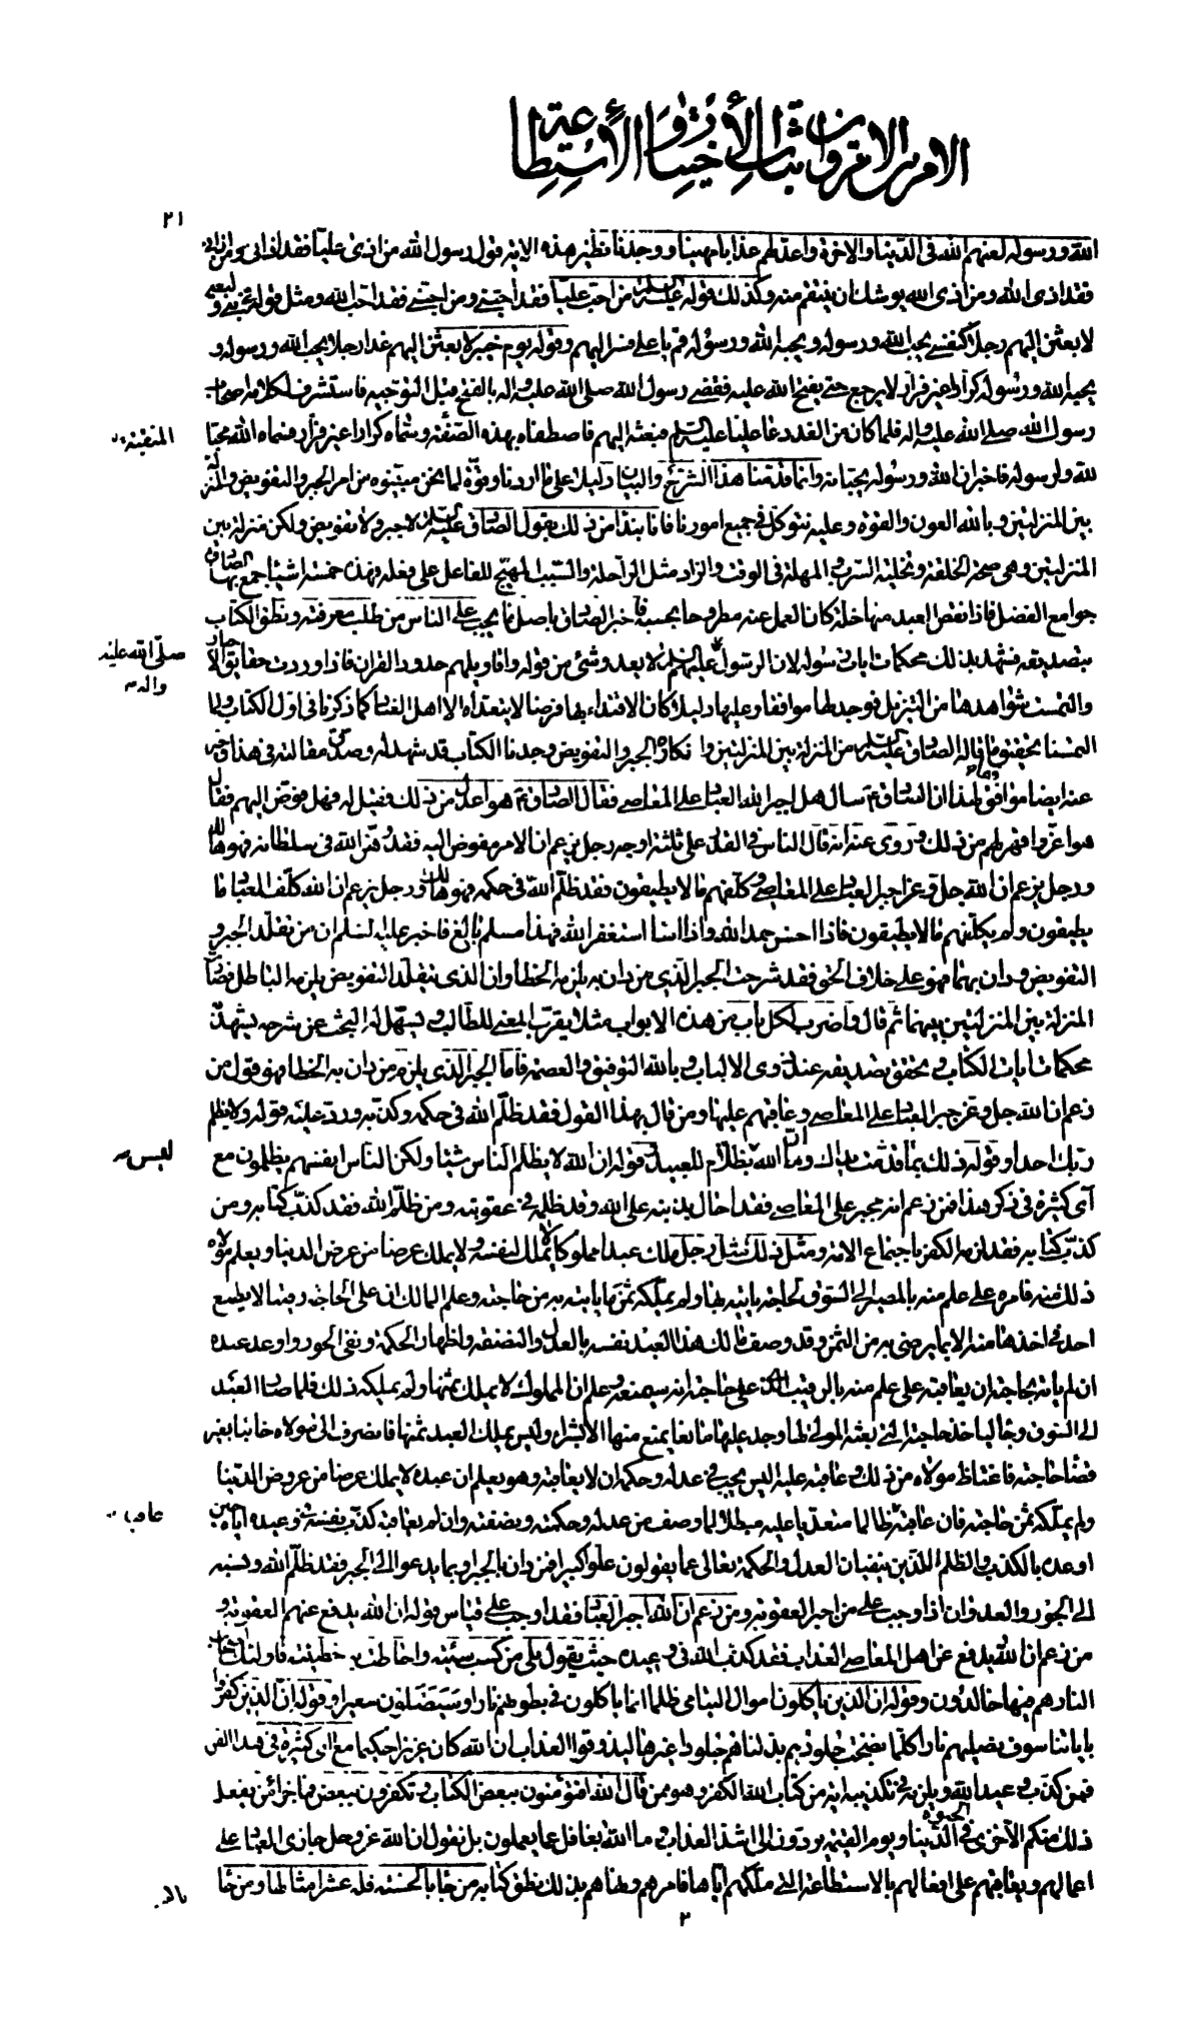 الامر بين الامرين واثبات الأختيار والأستطاعة
٢١
الله ورسوله لعنهم الله في الدنيا والاخرة واعد لهم عذابا مهينا ووجدنا نظير هذه الاية قول رسول الله من اذى عليا فقد اذاني ومن اذاني
فقد اذى الله ومن اذى الله يوشك ان ينتقم منه وكذلك قوله عليه السلام من احب عليا فقد احبني ومن احبني فقد احب الله ومثل قوله في بني وليعة
لابعثن اليهم رجلا كنفسي يحب الله ورسوله ويحبه الله ورسوله قم يا علي فسر اليهم وقوله يوم خيبر لابعثن اليهم غدا رجلا يحب الله ورسوله و
يحبه الله ورسوله كرارا غير فرار لا يرجع حتى يفتح الله عليه فقضى رسول الله صلى الله عليه واله بالفتح قبل التوجيه فاستشرف لكلامه اصحاب
رسول الله صلى الله عليه واله فلما كان من الغد دعا عليا عليه السلام فبعثه اليهم فاصطفاه بهذه الصفة وسماه كرارا غير فرار فسماه الله محبا
لله ولرسوله فاخبر ان الله ورسوله يحبانه وانما قدمنا هذا الشرح والبيان دليلا على ما اردنا وقوة لما نحن مبينوه من امر الجبر والتفويض والمنزلة
بين المنزلتين وبالله العون والقوة وعليه نتوكل في جميع امورنا فانا نبدأ من ذلك بقول الصادق عليه السلام لا جبر ولا تفويض ولكن منزلة بين
المنزلتين وهي صحة الخلقة وتخلية السرب والمهلة في الوقت والزاد مثل الراحلة والسبب المهيج للفاعل على فعله فهذه خمسة اشياء جمع بها الصادق
جوامع الفضل فاذا نقص العبد منها خلة كان العمل عنه مطروحا بحسبه فاخبر الصادق باصل ما يجب على الناس من طلب معرفته ونطق الكتاب
بتصديقه فشهد بذلك محكمات ايات رسوله لان الرسول عليه السلام لا يعدو شئ من قوله واقاويلهم حدود القران فاذا وردت حقايق الاخبار
صلى الله عليه
واله
والتمست شواهدها من التنزيل فوجد لها موافقا وعليها دليلا كان الاقتداء بها فرضا لا يتعداه الا اهل العناد كما ذكرنا في اول الكتاب ولما
التمسنا تحقيق ما قاله الصادق عليه السلام من المنزلة بين المنزلتين وانكاره الجبر والتفويض وجدنا الكتاب قد شهد له وصدق مقالته في هذا وخبر
عنه ايضا موافق لهذا ان الصادق سال هل اجبر الله العباد على المعاصي فقال الصادق هو اعدل من ذلك فقيل له فهل فوض اليهم فقال
هو اعز واقهر لهم من ذلك وروى عنه انه قال الناس في القدر على ثلثة اوجه رجل يزعم ان الامر مفوض اليه فقد وهن الله في سلطانه فهو هالك
ورجل يزعم ان الله جل وعز اجبر العباد على المعاصي وكلفهم ما لا يطيقون فقد ظلم الله في حكمه فهو هالك ورجل يزعم ان الله كلف العباد ما
يطيقون ولم يكلفهم ما لا يطيقون فاذا احسن حمد الله واذا اساء استغفر الله فهذا مسلم بالغ فاخبر عليه السلام ان من تقلد الجبر و
التفويض ودان بهما فهو على خلاف الحق فقد شرحت الجبر الذي من دان به يلزمه الخطا وان الذي يتقلد التفويض يلزمه الباطل فصارت
المنزلة بين المنزلتين بينهما ثم قال واضرب لكل باب من هذه الابواب مثلا يقرب المعنى للطالب ويسهل له البحث عن شرحه يشهد به
محكمات ايات الكتاب وتحقق تصديقه عند ذوى الالباب وبالله التوفيق والعصمة فاما الجبر الذي يلزم من دان به الخطا فهو قول من
زعم ان الله جل وعز جبر العباد على المعاصي وعاقبهم عليها ومن قال بهذا القول فقد ظلم الله في حكمه وكذبه ورد عليه قوله ولا يظلم
ربك احدا وقوله ذلك بما قدمت يداك وان الله ليس بظلام للعبيد وقوله ان الله لا يظلم الناس شيئا ولكن الناس انفسهم يظلمون مع
ليس
آى كثيرة في ذكر هذا فمن زعم انه مجبر على المعاصي فقد احال بذنبه على الله وقد ظلمه في عقوبته ومن ظلم الله فقد كذب كتابه ومن
كذب كتابه فقد لزمه الكفر باجتماع الامة ومثل ذلك مثل رجل ملك عبدا مملوكا لا يملك نفسه ولا يملك عرضا من عرض الدنيا ويعلم مولاه
ذلك منه فامره على علم منه بالمصير الى السوق لحاجة ياتيه بها ولم يملكه ثمن ما ياتيه به من حاجته وعلم المالك ان على الحاجة رقيبا لا يطمع
احد في اخذها منه الا بما يرضى به من الثمن وقد وصف مالك هذا العبد نفسه بالعدل والنصفة واظهار الحكمة ونفى الجور واوعد عبده
ان لم ياته بحاجته ان يعاقبه على علم منه بالرقيب الذي على حاجته انه سيمنعه وعلم ان المملوك لا يملك ثمنها ولم يملكه ذلك فلما صار العبد
الى السوق وجاء لياخذ حاجته التي بعثه المولى لها وجد عليها مانعا يمنع منها الا بشراء وليس يملك العبد ثمنها فانصرف الى مولاه خائبا بغير
قضاء حاجته فاغتاظ مولاه من ذلك وعاقبه عليه اليس يجب في عدله وحكمه ان لا يعاقبه وهو يعلم ان عبده لا يملك عرضا من عروض الدنيا
ولم يملكه ثمن حاجته فان عاقبه ظالما متعديا عليه مبطلا لما وصف من عدله وحكمته ونصفته وان لم يعاقبه كذب نفسه في وعيده اياه حين
اوعده بالكذب والظلم اللذين ينفيان العدل والحكمة تعالى عما يقولون علوا كبيرا فمن دان بالجبر او بما يدعو الى الجبر فقد ظلم الله ونسبه
الى الجور والعدوان اذ اوجب على من اجبر العقوبة ومن زعم ان الله اجبر العباد فقد اوجب على قياس قوله ان الله يدفع عنهم العقوبة و
من زعم ان الله يدفع عن اهل المعاصي العذاب فقد كذب الله في وعيده حيث يقول بلى من كسب سيئة واحاطت به خطيئته فاولئك اصحاب
النار هم فيها خالدون وقوله ان الذين ياكلون اموال اليتامى ظلما انما ياكلون في بطونهم نارا وسيصلون سعيرا وقوله ان الذين كفروا
باياتنا سوف نصليهم نارا كلما نضجت جلودهم بدلناهم جلودا غيرها ليذوقوا العذاب ان الله كان عزيزا حكيما مع آى كثيرة في هذا الفن
فمن كذب وعيد الله ويلزمه في تكذيبه اية من كتاب الله الكفر وهو ممن قال الله افتؤمنون ببعض الكتاب وتكفرون ببعض فما جزاء من يفعل
ذلك منكم الا خزى في الحيوة الدنيا ويوم القيمة يردون الى اشد العذاب وما الله بغافل عما يعملون بل نقول ان الله عز وجل جازى العباد على
اعمالهم ويعاقبهم على افعالهم بالاستطاعة التي ملكهم اياها فامرهم ونهاهم بذلك نطق كتابه من جاء بالحسنة فله عشر امثالها ومن جاء
٢